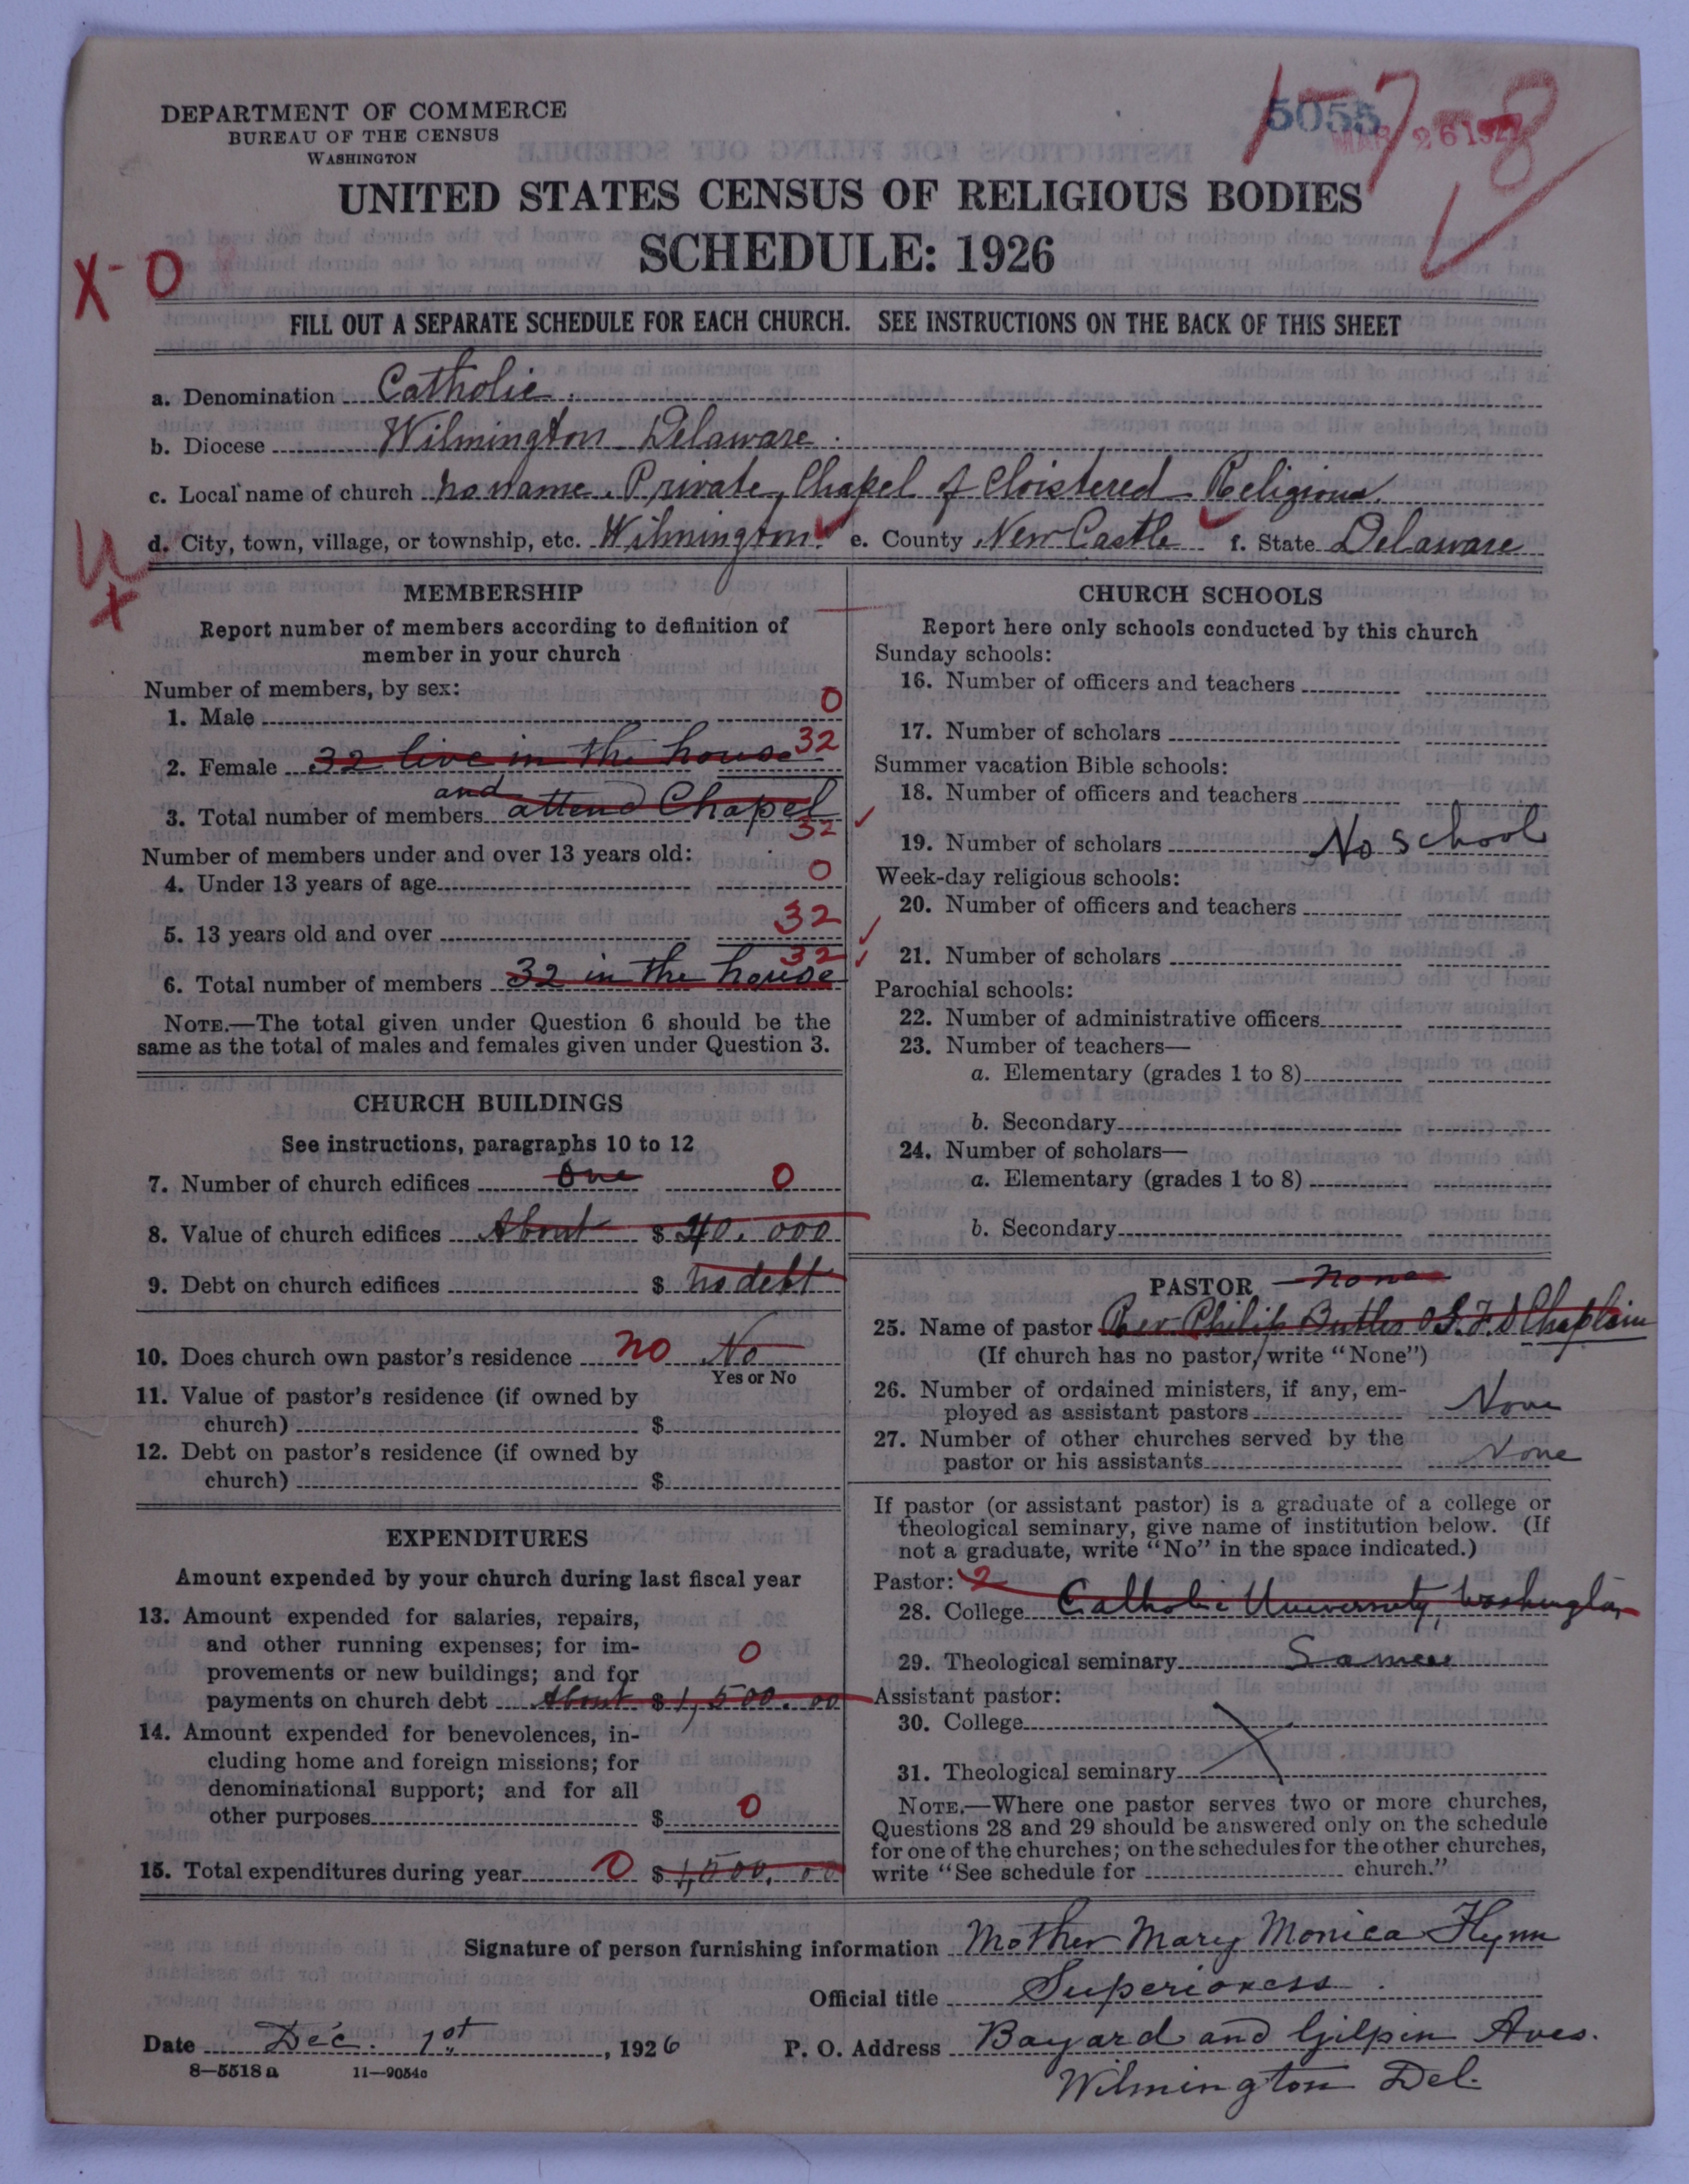 DEPARTMENT OF COMMERCE
BUREAU OF THE CENSUS
WASHINGTON
5055
MAR 26 1927
157-8
UNITED STATES CENSUS OF RELIGIOUS BODIES
SCHEDULE: 1926
X-0
FILL OUT A SEPARATE SCHEDULE FOR EACH CHURCH. SEE INSTRUCTIONS ON THE BACK OF THIS SHEET
a. Denomination Catholic.
b. Diocese Wilmington Delaware.
c. Local name of church no name. Private Chapel of Cloistered Religious.
d. City, town, village, or township, etc. Wilmington. e. County New Castle f. State Delaware
U
X
MEMBERSHIP
Report number of members according to definition of
member in your church
Number of members, by sex:
1. Male 0
2. Female 32 live in the house 32
3. Total number of members and attend Chapel 32
Number of members under and over 13 years old:
4. Under 13 years of age 0
5. 13 years old and over 32
6. Total number of members 32 in the house 32
NOTE.—The total given under Question 6 should be the
same as the total of males and females given under Question 3.
CHURCH BUILDINGS
See instructions, paragraphs 10 to 12
7. Number of church edifices one 0
8. Value of church edifices About $ 40,000
9. Debt on church edifices $ no debt
10. Does church own pastor's residence no No
Yes or No
11. Value of pastor's residence (if owned by
church) $
12. Debt on pastor's residence (if owned by
church) $
EXPENDITURES
Amount expended by your church during last fiscal year
13. Amount expended for salaries, repairs,
and other running expenses; for im-
provements or new buildings; and for
payments on church debt About $ 1,500.00 0
14. Amount expended for benevolences, in-
cluding home and foreign missions; for
denominational support; and for all
other purposes $ 0
15. Total expenditures during year 0 $ 1,500.00
CHURCH SCHOOLS
Report here only schools conducted by this church
Sunday schools:
16. Number of officers and teachers
17. Number of scholars
Summer vacation Bible schools:
18. Number of officers and teachers
19. Number of scholars No School
Week-day religious schools:
20. Number of officers and teachers
21. Number of scholars
Parochial schools:
22. Number of administrative officers
23. Number of teachers—
a. Elementary (grades 1 to 8)
b. Secondary
24. Number of scholars—
a. Elementary (grades 1 to 8)
b. Secondary
PASTOR none
25. Name of pastor Rev Philip Butler O.S.F.S Chaplain
(If church has no pastor, write "None")
26. Number of ordained ministers, if any, em-
ployed as assistant pastors None
27. Number of other churches served by the
pastor or his assistants None
If pastor (or assistant pastor) is a graduate of a college or
theological seminary, give name of institution below. (If
not a graduate, write "No" in the space indicated.)
Pastor: 2
28. College Catholic University, Washington
29. Theological seminary Same
Assistant pastor:
30. College
31. Theological seminary
NOTE.—Where one pastor serves two or more churches,
Questions 28 and 29 should be answered only on the schedule
for one of the churches; on the schedules for the other churches,
write "See schedule for church."
Signature of person furnishing information Mother Mary Monica Flynn
Official title Superioress.
Date Dec. 1st, 1926 P. O. Address Bayard and Gilpin Aves.
Wilmington Del.
8—5518a 11—9054c